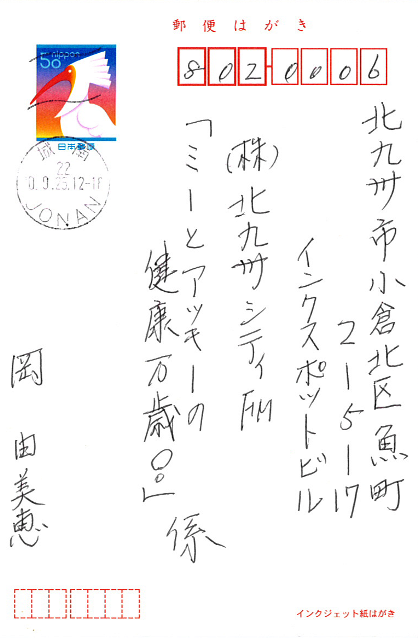 郵便はがき
50 nippon
日本郵便
城南
22
10.9.25.12-18
JONAN
802-0006
北九州市小倉北区魚町
2-5-17
インクスポットビル
(株)北九州シティFM
「ミーとアッキーの
健康万歳!!」係
岡 由美恵
インクジェット紙はがき